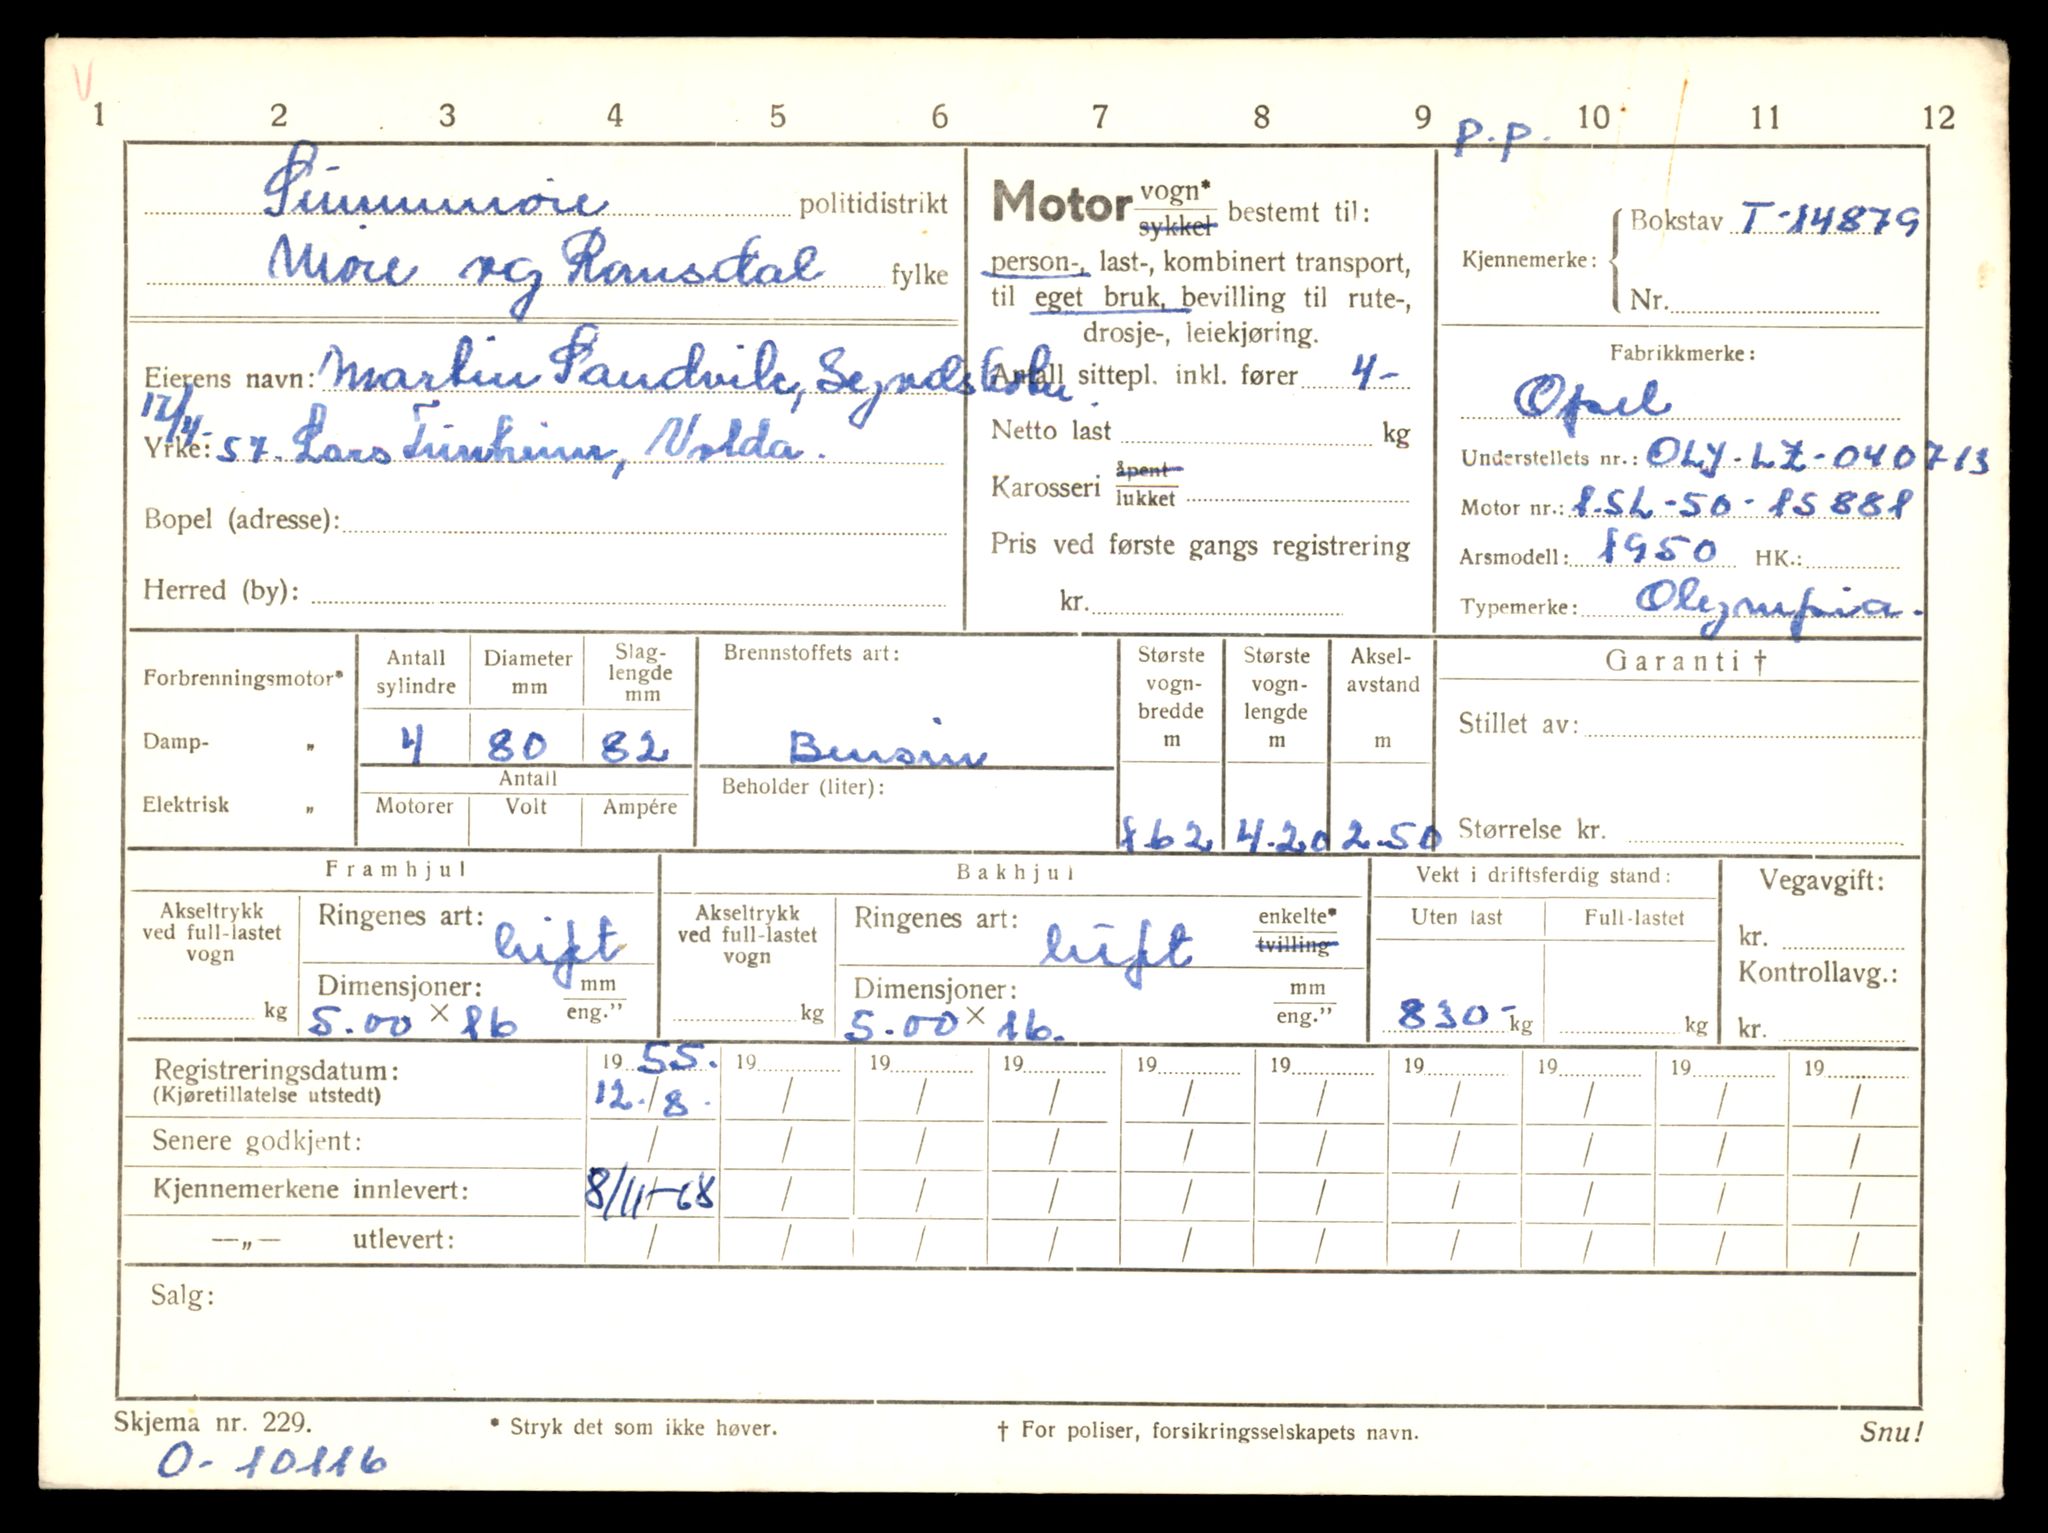 V
1 2 3 4 5 6 7 8 9 10 11 12
P.P.
Sunnmøre politidistrikt
Møre og Romsdal fylke
Eierens navn: Martin Sandvik,
12/4-
Yrke: 57. Lars Tunheim, Volda.
Bopel (adresse):
Herred (by):
Motor vogn* / sykkel bestemt til:
person-, last-, kombinert transport,
til eget bruk, bevilling til rute-,
drosje-, leiekjøring.
Antall sittepl. inkl. fører 4-
Netto last kg
Karosseri åpent / lukket
Pris ved første gangs registrering
kr.
Kjennemerke: Bokstav T-14879
Nr.
Fabrikkmerke:
Opel
Understellets nr.: OLY-LZ-040713
Motor nr.: 1.5L-50-15881
Arsmodell: 1950 HK.:
Typemerke: Olympia.
Forbrenningsmotor*
Damp- „
Elektrisk „
Antall sylindre
4
Diameter mm
80
Slag-
lengde
mm
82
Antall
Motorer Volt Ampére
Brennstoffets art:
Bensin
Beholder (liter):
Største
vogn-
bredde
m
162
Største
vogn-
lengde
m
4.20
Aksel-
avstand
m
2.50
Garanti †
Stillet av:
Størrelse kr.
Framhjul
Akseltrykk
ved full-lastet
vogn
kg
Ringenes art: luft
Dimensjoner: mm / eng.”
5.00 × 16
Bakhjul
Akseltrykk
ved full-lastet
vogn
kg
Ringenes art: luft enkelte* / tvilling
Dimensjoner: mm / eng.”
5.00 × 16.
Vekt i driftsferdig stand:
Uten last Full-lastet
830- kg kg
Vegavgift:
kr.
Kontrollavg.:
kr.
Registreringsdatum: 19 55. 19 19 19 19 19 19 19 19 19
(Kjøretillatelse utstedt) 12./8. / / / / / / / / /
Senere godkjent: / / / / / / / / / /
Kjennemerkene innlevert: 8/11-68 / / / / / / / / /
—„— utlevert: / / / / / / / / / /
Salg:
Skjema nr. 229. * Stryk det som ikke høver. † For poliser, forsikringsselskapets navn. Snu!
O-10116